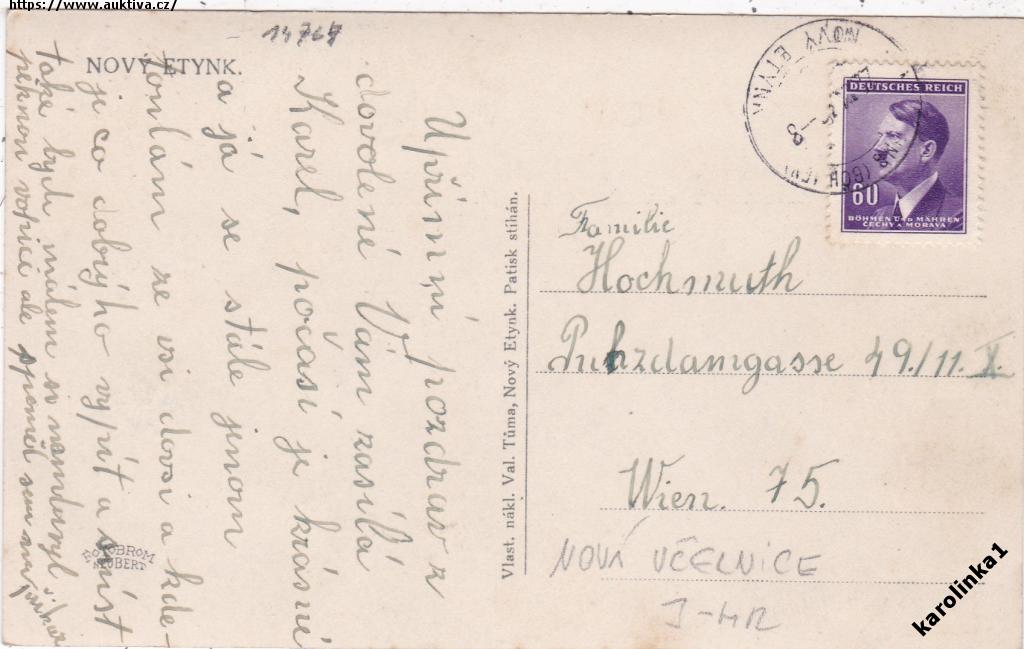 https://www.auktiva.cz/
14767
NOVÝ ETYNK.
Upřímný pozdrav z
dovolené Vám zasílá
Karel, počasí je krásné
a já se stále jenom
toulám ze vsi do vsi a kde
je co dobrýho vypít a sníst
také bych málem si namluvyl
peknou vopici ale
ROTOBROM
NEUBERT
Vlast. nákl. Val. Tůma, Nový Etynk. Patisk stíhán.
NOVÝ ETYNK
DEUTSCHES REICH
60
BÖHMEN UND MÄHREN
ČECHY A MORAVA
Familie
Hochmuth
49/11. X.
Wien. 75.
NOVÁ VČELNICE
J-HR
karolinka1